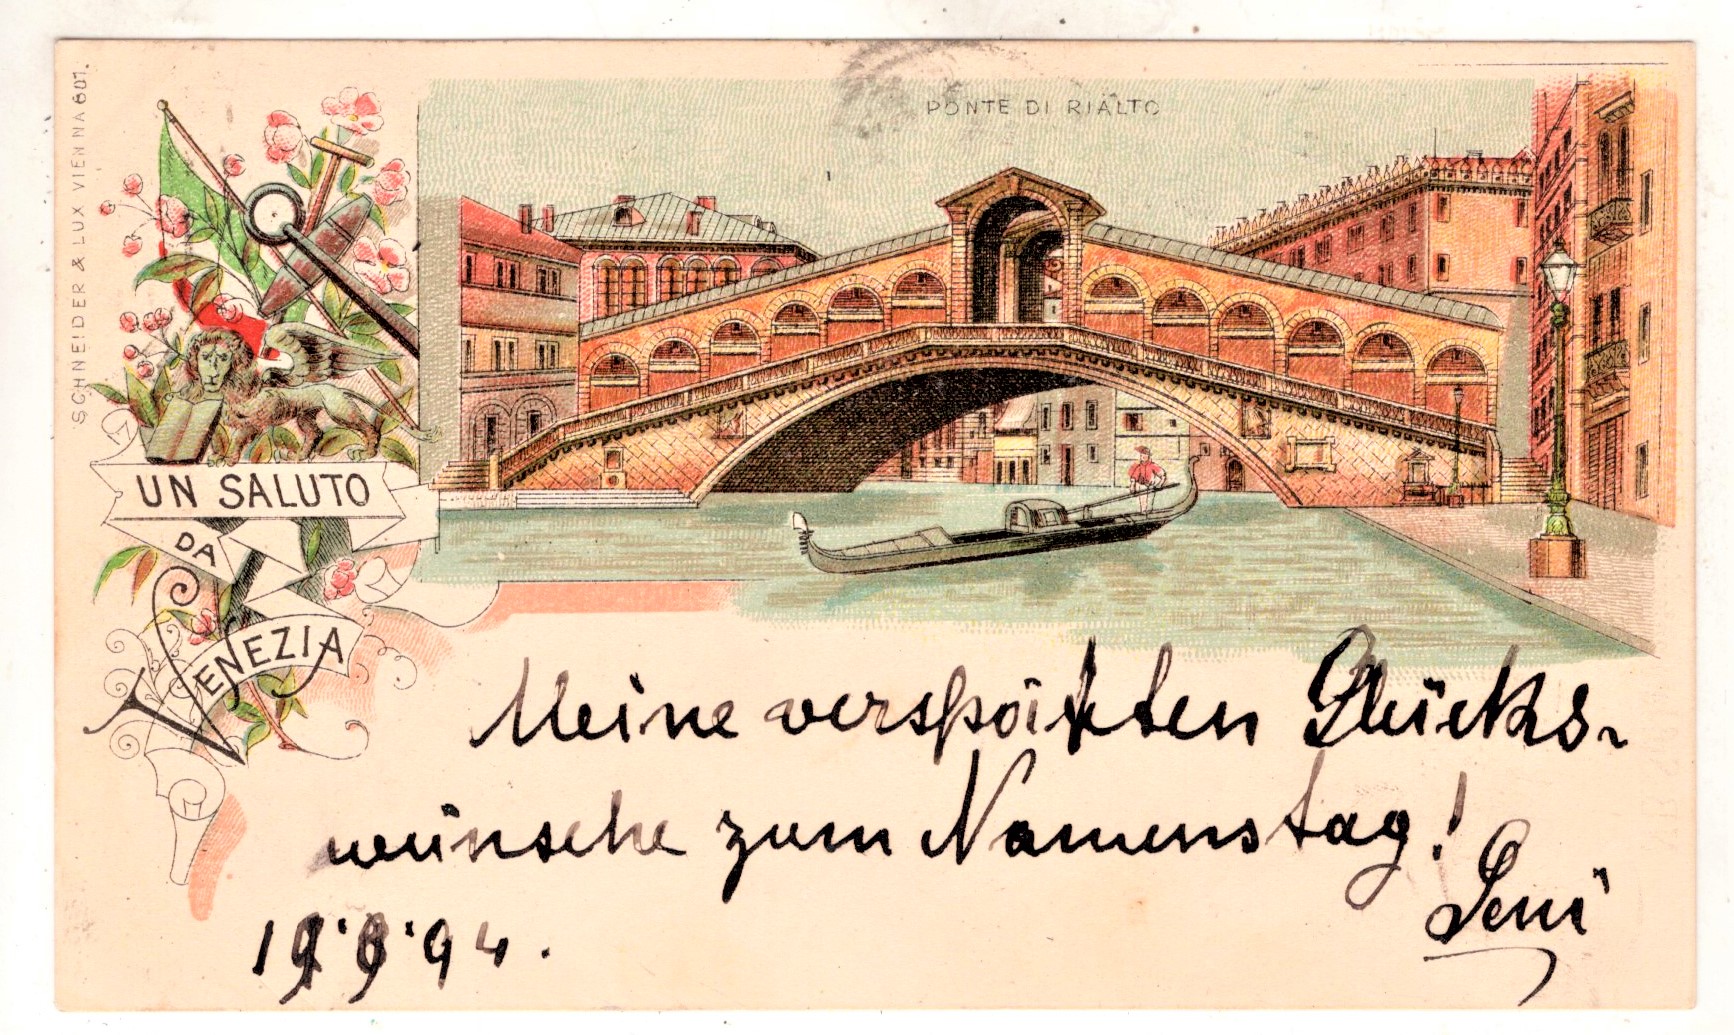 SCHNEIDER & LUX VIENNA 607.
PONTE DI RIALTO
UN SALUTO
DA
VENEZIA
Meine verspäteten Glücks-
wünsche zum Namenstag!
Leni
94.